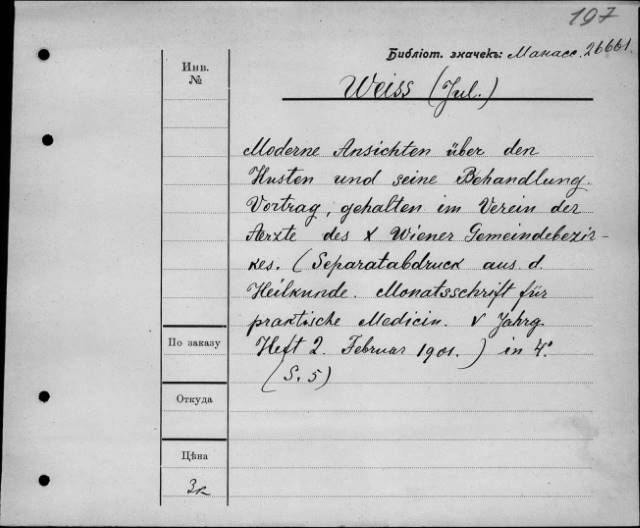 197
Библіот. значекъ: Манасс. 26661.
Инв. №
Weiss (Jul.)
Moderne Ansichten über den
Husten und seine Behandlung.
Vortrag, gehalten im Verein der
Aerzte des X Wiener Gemeindebezir-
kes. (Separatabdruck aus d.
Heilkunde. Monatsschrift für
praktische Medicin. V Jahrg.
Heft 2. Februar 1901.) in 4°
(S. 5)
По заказу
Откуда
Цѣна
3к